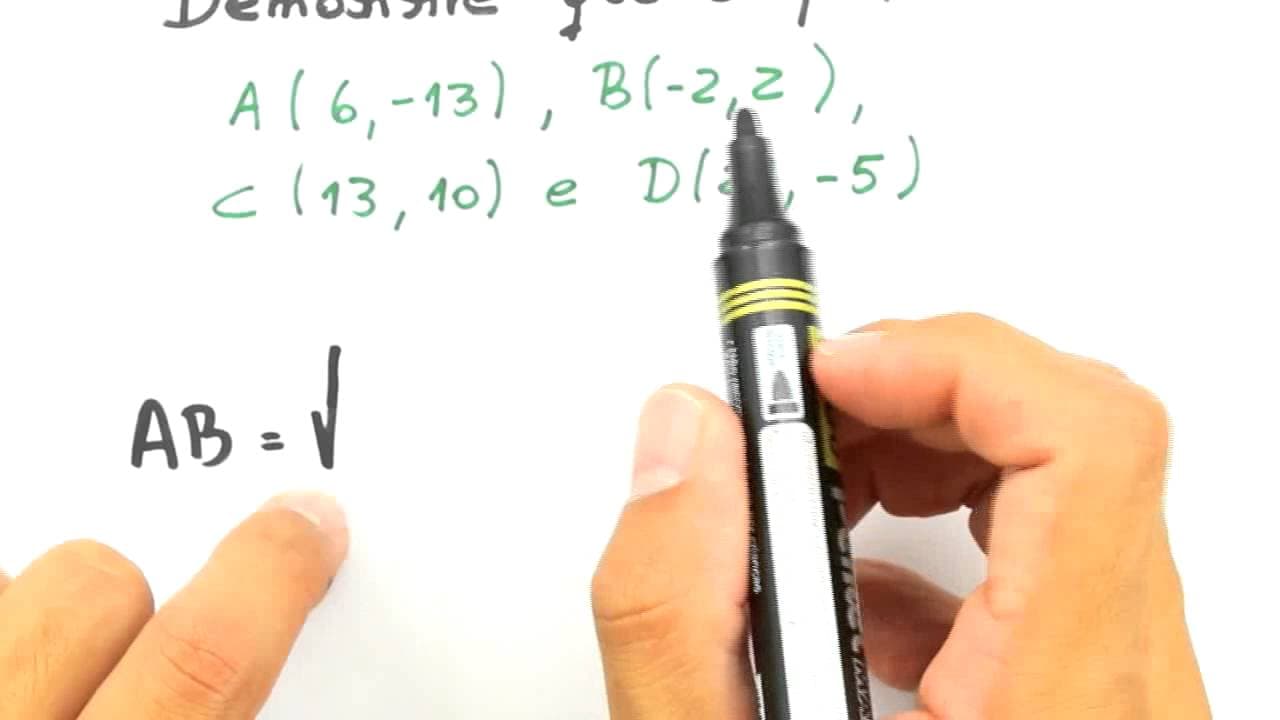 Demonstre que o
A(6,-13), B(-2,2),
C(13,10) e D( , -5)
AB = √